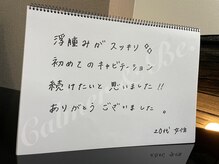 浮腫みがスッキリ♡｡
初めてのキャビテーション
続けたいと思いました!!
ありがとうございました。
20代 女性